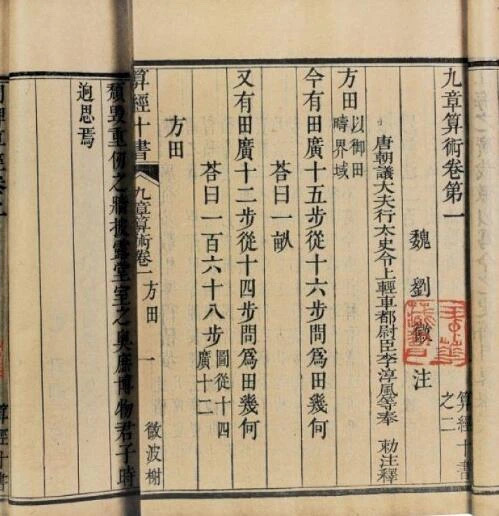 九章算術卷第一
算經十書
之二
魏 劉徽 注
唐朝議大夫行太史令上輕車都尉臣李淳風等奉 勅注釋
方田以御田疇界域
今有田廣十五步從十六步問爲田幾何
荅曰一畝
又有田廣十二步從十四步問爲田幾何
荅曰一百六十八步圖從十四廣十二
方田
算經十書 九章算術卷一 方田 一 微波榭
頹毀重仞之牆披露堂室之奥廉博物君子時
迥思焉
算經十書